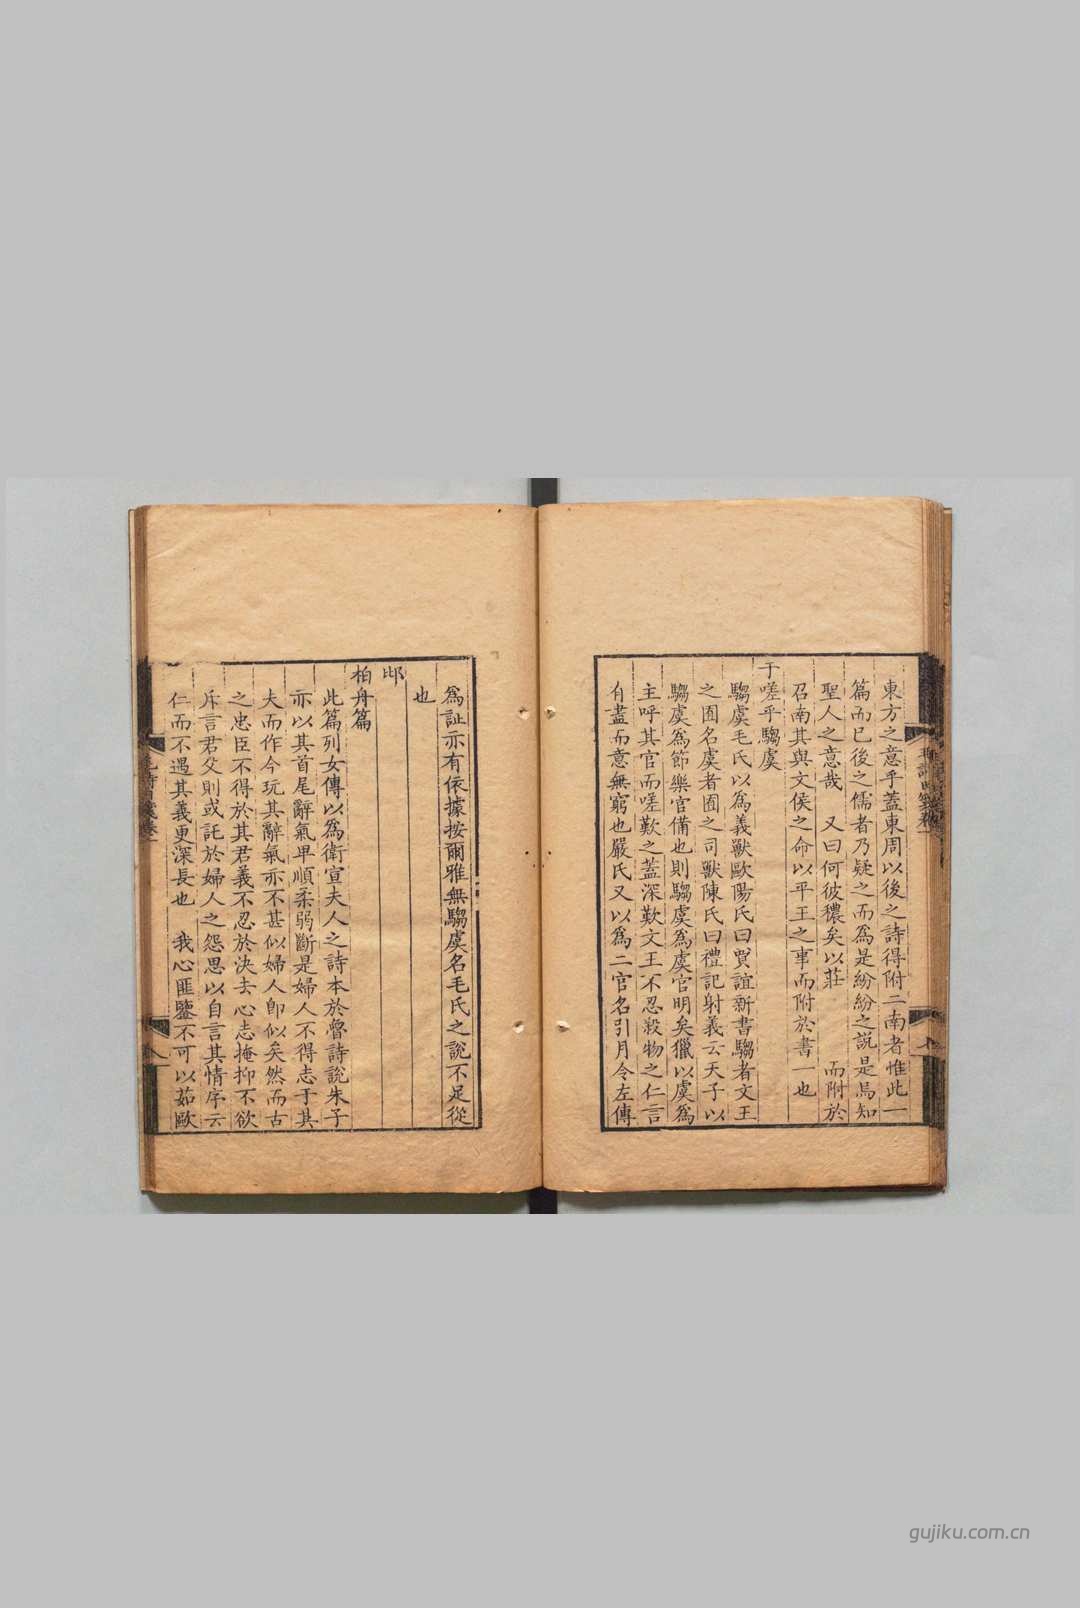 東方之意乎蓋東周以後之詩得附二南者惟此一
篇而已後之儒者乃疑之而為是紛紛之説是烏知
聖人之意哉 又曰何彼穠矣以莊 而附於
召南其與文侯之命以平王之事而附於書一也
于嗟乎騶虞
騶虞毛氏以為義獸歐陽氏曰賈誼新書騶者文王
之囿名虞者囿之司獸陳氏曰禮記射義云天子以
騶虞為節樂官備也則騶虞為虞官明矣獵以虞為
主呼其官而嗟歎之蓋深歎文王不忍殺物之仁言
有盡而意無窮也嚴氏又以為二官名引月令左傳
為証亦有依據按爾雅無騶虞名毛氏之說不足從
也
邶
柏舟篇
此篇列女傳以為衛宣夫人之詩本於魯詩說朱子
亦以其首尾辭氣卑順柔弱斷是婦人不得志于其
夫而作今玩其辭氣亦不甚似婦人即似矣然而古
之忠臣不得於其君義不忍於決去心志掩抑不欲
斥言君父則或託於婦人之怨思以自言其情序云
仁而不遇其義更深長也 我心匪鑒不可以茹歐
gujiku.com.cn